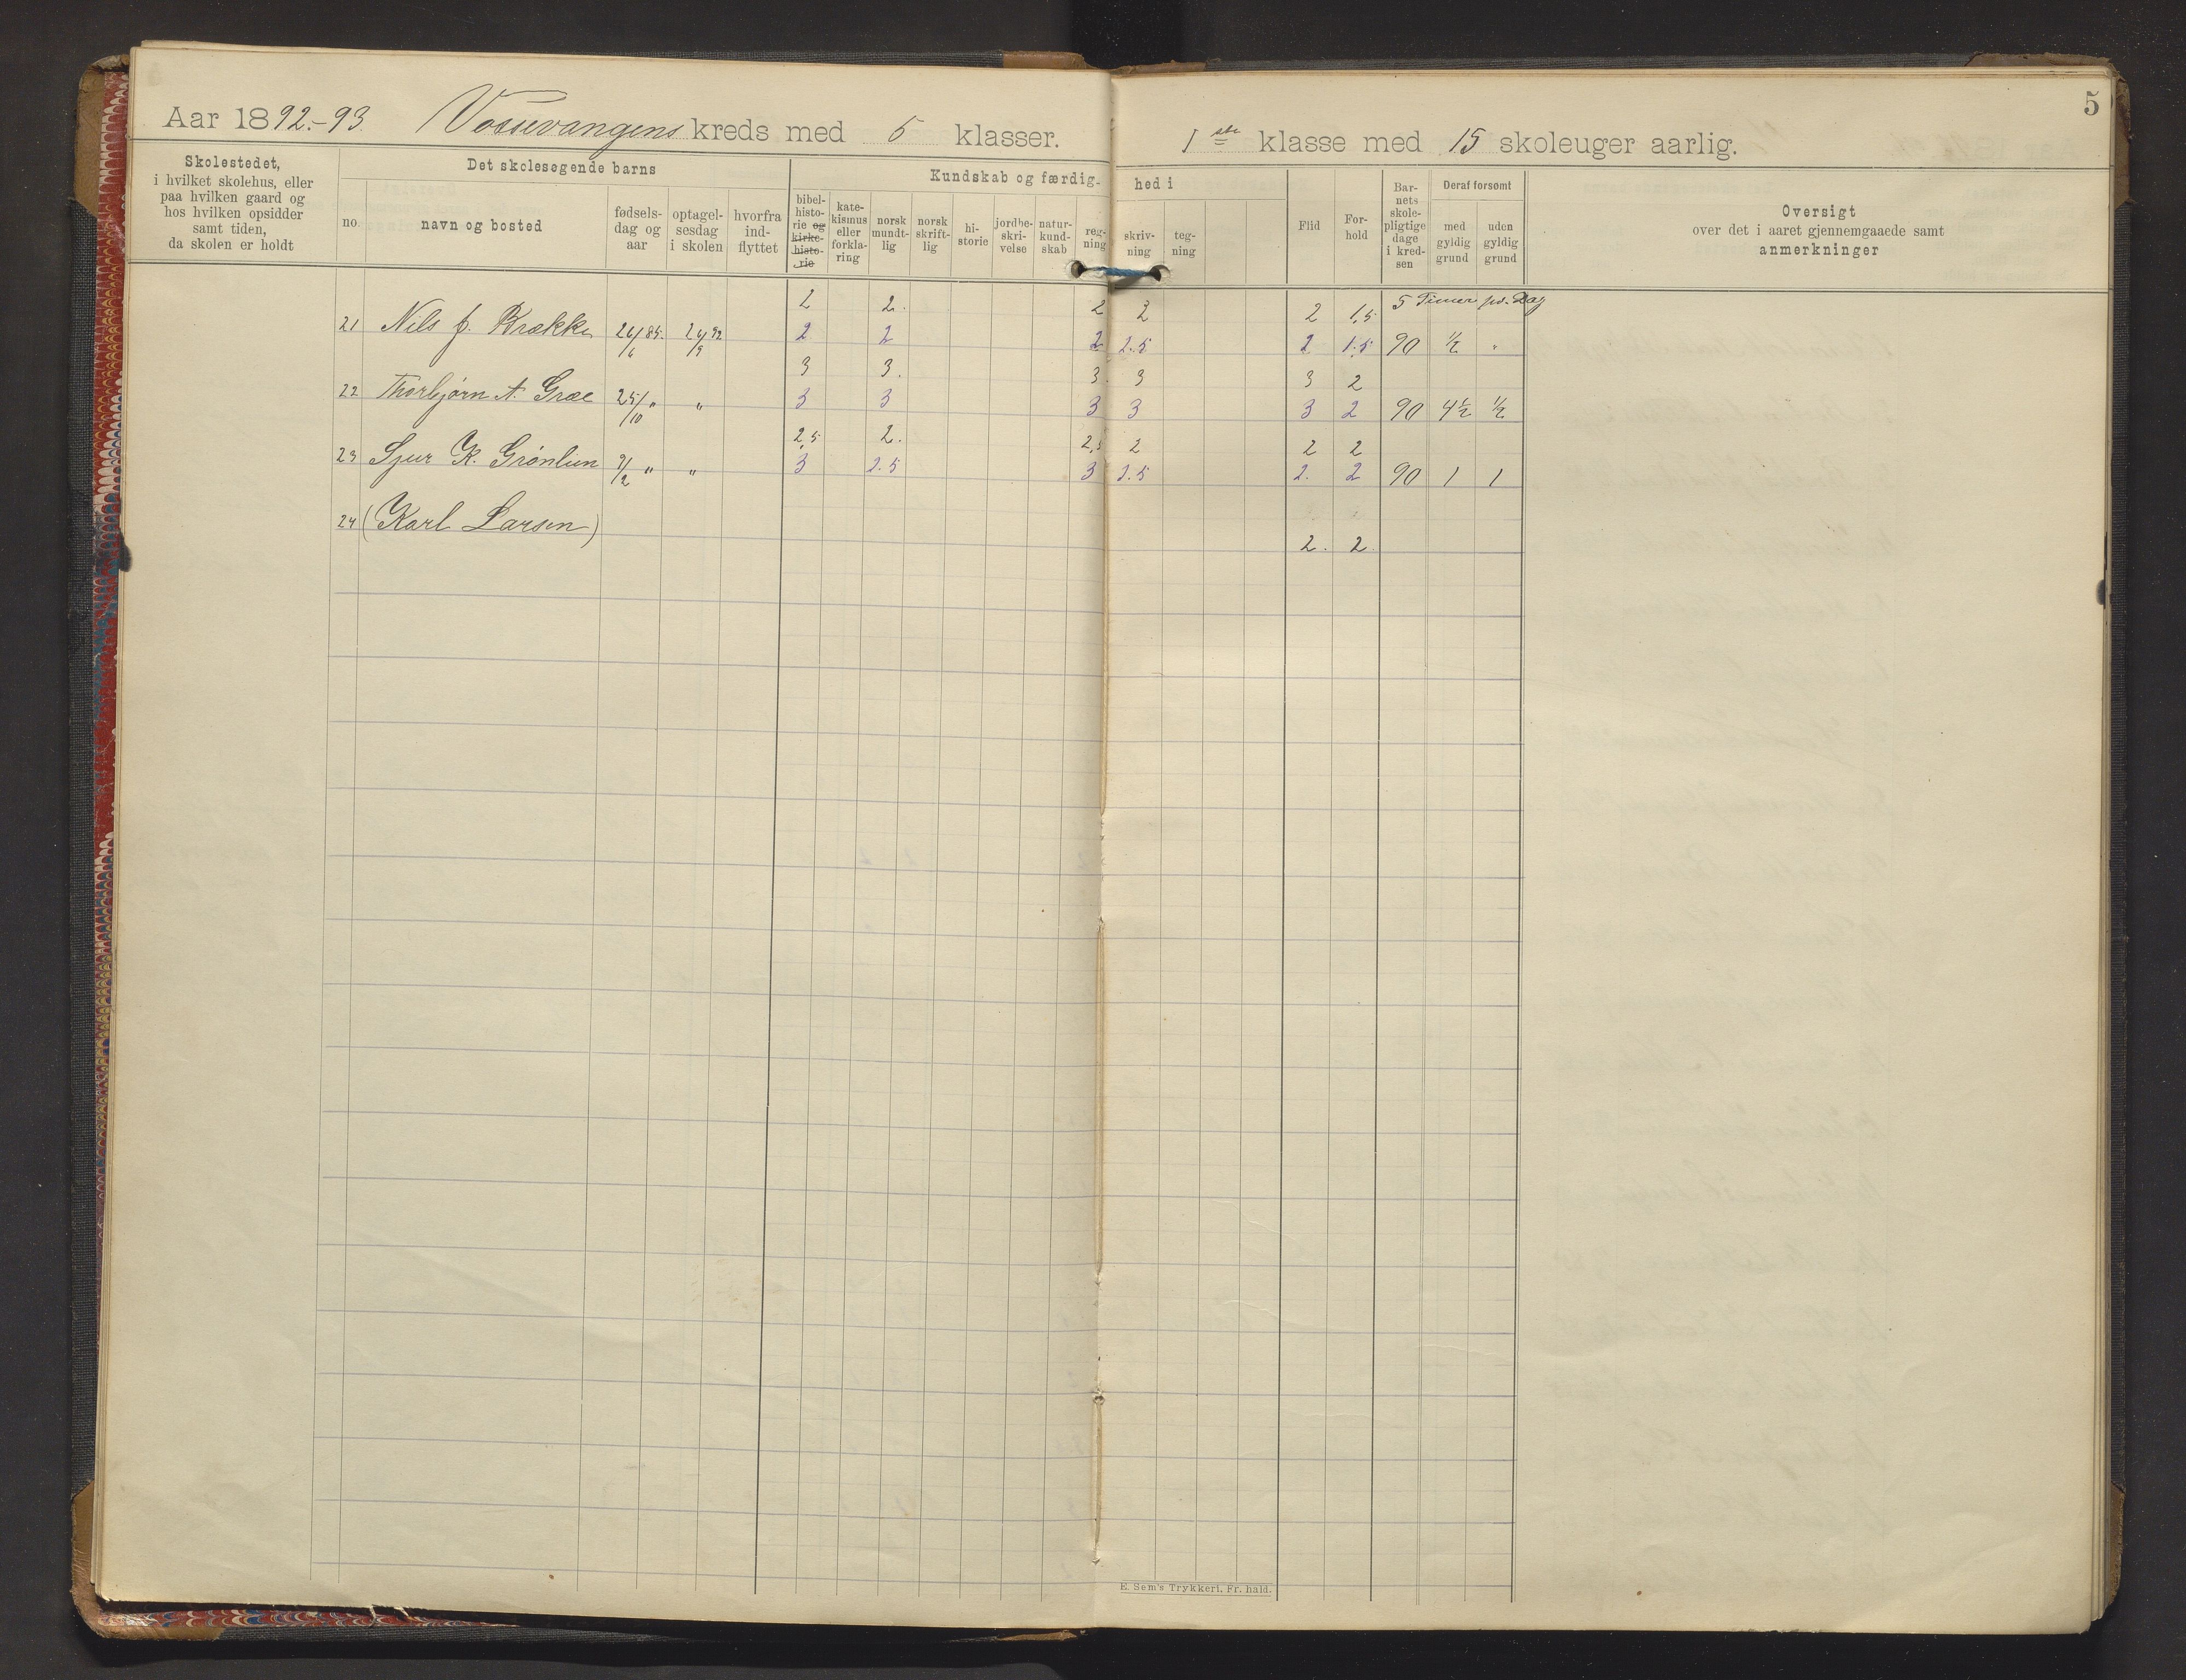 5
Aar 1892-93. Vossevangens kreds med 5 klasser. 1ste klasse med 15 skoleuger aarlig.
Skolestedet,
i hvilket skolehus, eller
paa hvilken gaard og
hos hvilken opsidder
samt tiden,
da skolen er holdt
Det skolesøgende barns
no.
navn og bosted
fødsels-
dag og
aar
optagel-
sesdag
i skolen
hvorfra
ind-
flyttet
Kundskab og færdig- hed i
bibel-
histo-
rie og
kirke-
histo-
rie
kate-
kismus
eller
forkla-
ring
norsk
mundt-
lig
norsk
skrift-
lig
hi-
storie
jordbe-
skri-
velse
natur-
kund-
skab
reg-
ning
skriv-
ning
teg-
ning
Flid
For-
hold
Bar-
nets
skole-
pligtige
dage
i kred-
sen
Deraf forsømt
med
gyldig
grund
uden
gyldig
grund
Oversigt
over det i aaret gjennemgaaede samt
anmerkninger
2 2. 2 2 2 1,5 5 Timer pr. Dag
21 Nils J. Brække 26/6 85. 26/9 92 2 2 2 2.5 2 1.5 90 ½ "
3 3. 3. 3 3 2
22 Thorbjørn A. Græe 25/10 " " 3 3 3 3 3 2 90 4½ ½
2,5 2. 2,5 2 2 2
23 Sjur K. Grønlien 9/2 " " 3 2.5 3 2.5 2. 2 90 1 1
24 (Karl Larsen)
2. 2.
E. Sem's Trykkeri, Fr.hald.